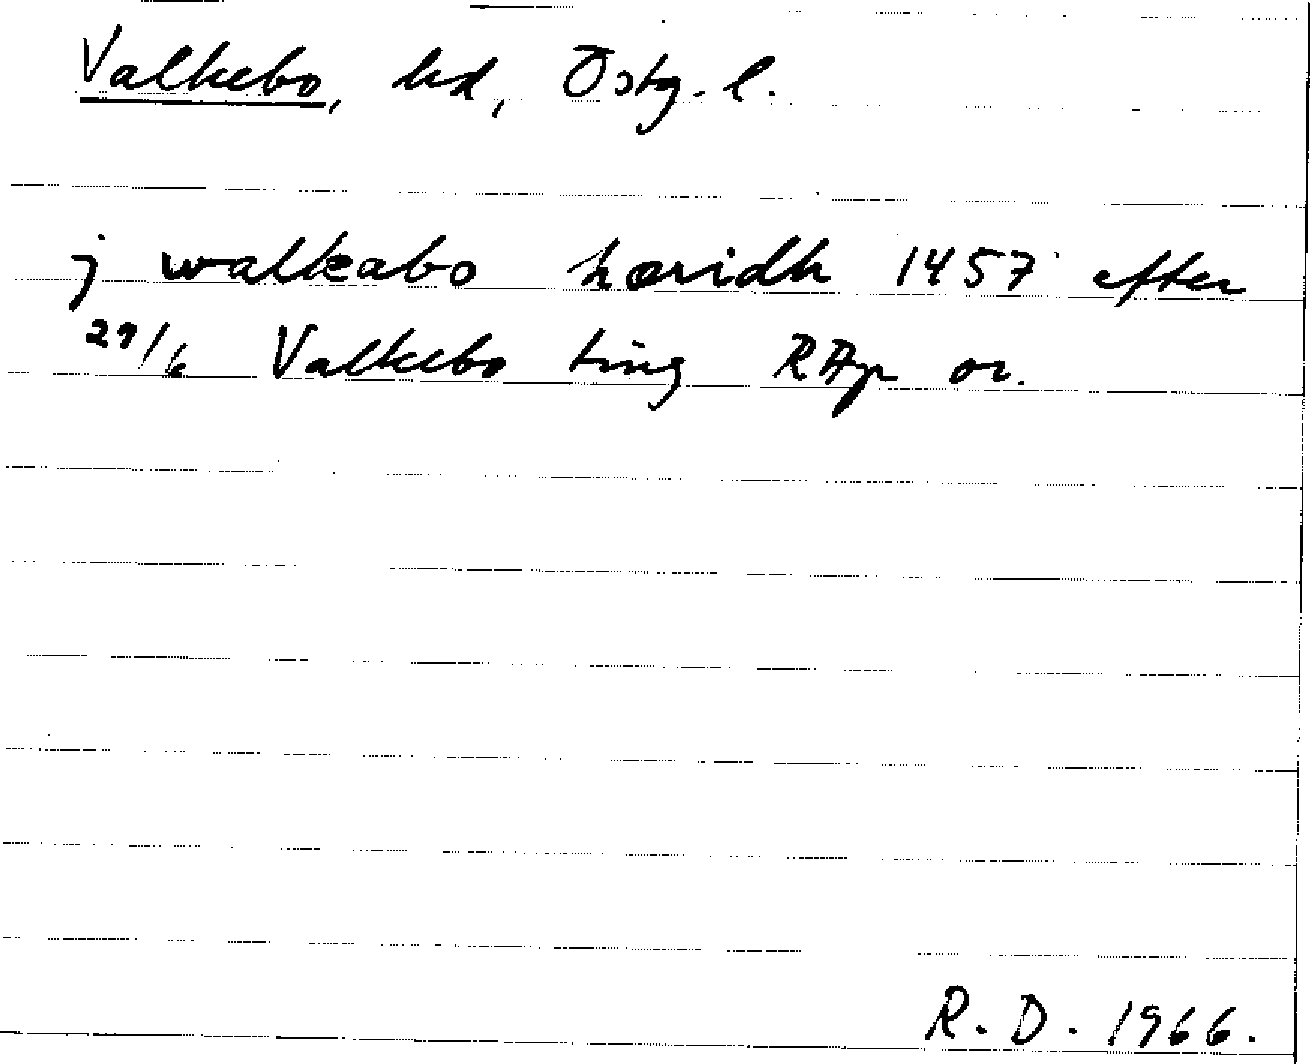 Valkebo, hd, Östg. l.
j walkabo hæridh 1457 efter
29/6 Valkebo ting RAp or.
R. D. 1966.